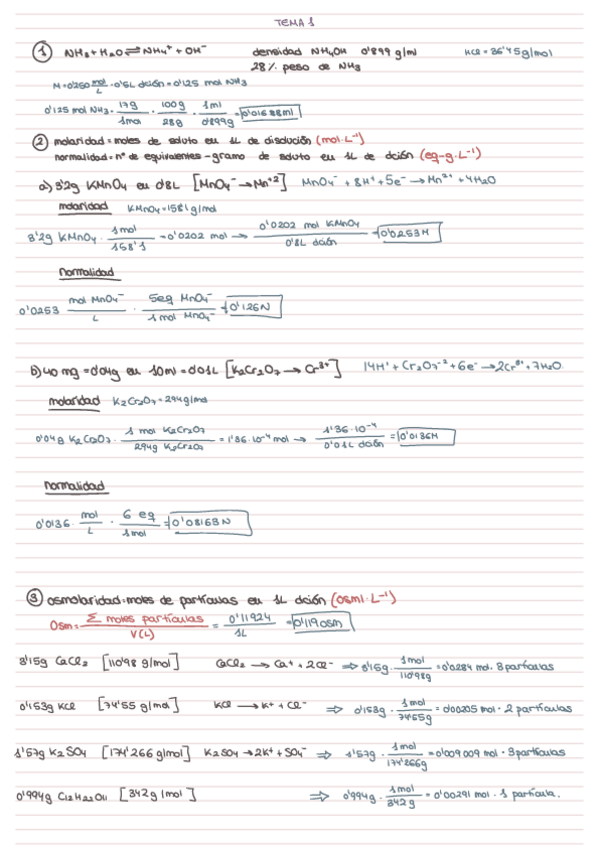 TEMA 1
① NH₃ + H₂O ⇌ NH₄⁺ + OH⁻ densidad NH₄OH 0'899 g/ml HCl = 36'45 g/mol
28% peso de NH₃
M = 0'250 mol/L · 0'5L dción = 0'125 mol NH₃
0'125 mol NH₃ · 17g/1mol · 100g/28g · 1ml/0'899g = 0'01688ml
② molaridad = moles de soluto en 1L de disolución (mol·L⁻¹)
normalidad = nº de equivalentes-gramo de soluto en 1L de dción (eq-g·L⁻¹)
a) 3'2g KMnO₄ en 0'8L [MnO₄⁻ → Mn⁺²] MnO₄⁻ + 8H⁺ + 5e⁻ → Mn²⁺ + 4H₂O
molaridad KMnO₄ = 158'1 g/mol
3'2g KMnO₄ · 1mol/158'1 = 0'0202 mol → 0'0202 mol KMnO₄/0'8L dción = 0'0253M
normalidad
0'0253 mol MnO₄⁻/L · 5eq MnO₄⁻/1 mol MnO₄⁻ = 0'126N
b) 40 mg = 0'04g en 10ml = 0'01L [K₂Cr₂O₇ → Cr³⁺] 14H⁺ + Cr₂O₇⁻² + 6e⁻ → 2Cr³⁺ + 7H₂O
molaridad K₂Cr₂O₇ = 294g/mol
0'04g K₂Cr₂O₇ · 1 mol K₂Cr₂O₇/294g K₂Cr₂O₇ = 1'36·10⁻⁴ mol → 1'36·10⁻⁴/0'01L dción = 0'0136M
normalidad
0'0136 · mol/L · 6 eq/1mol = 0'0816N
③ osmolaridad = moles de partículas en 1L dción (osml·L⁻¹)
Osm = Σ moles partículas/V(L) = 0'11924/1L = 0'119osm
3'15g CaCl₂ [110'98 g/mol] CaCl₂ → Ca⁺ + 2Cl⁻ ⇒ 3'15g · 1mol/110'98g = 0'0284 mol · 3 partículas
0'153g KCl [74'55 g/mol] KCl → K⁺ + Cl⁻ ⇒ 0'153g · 1mol/74'55g = 0'00205 mol · 2 partículas
1'57g K₂SO₄ [174'266 g/mol] K₂SO₄ → 2K⁺ + SO₄⁻ ⇒ 1'57g · 1mol/174'266g = 0'009009 mol · 3 partículas
0'994g C₁₂H₂₂O₁₁ [342 g/mol] ⇒ 0'994g · 1mol/342g = 0'00291 mol · 1 partícula.